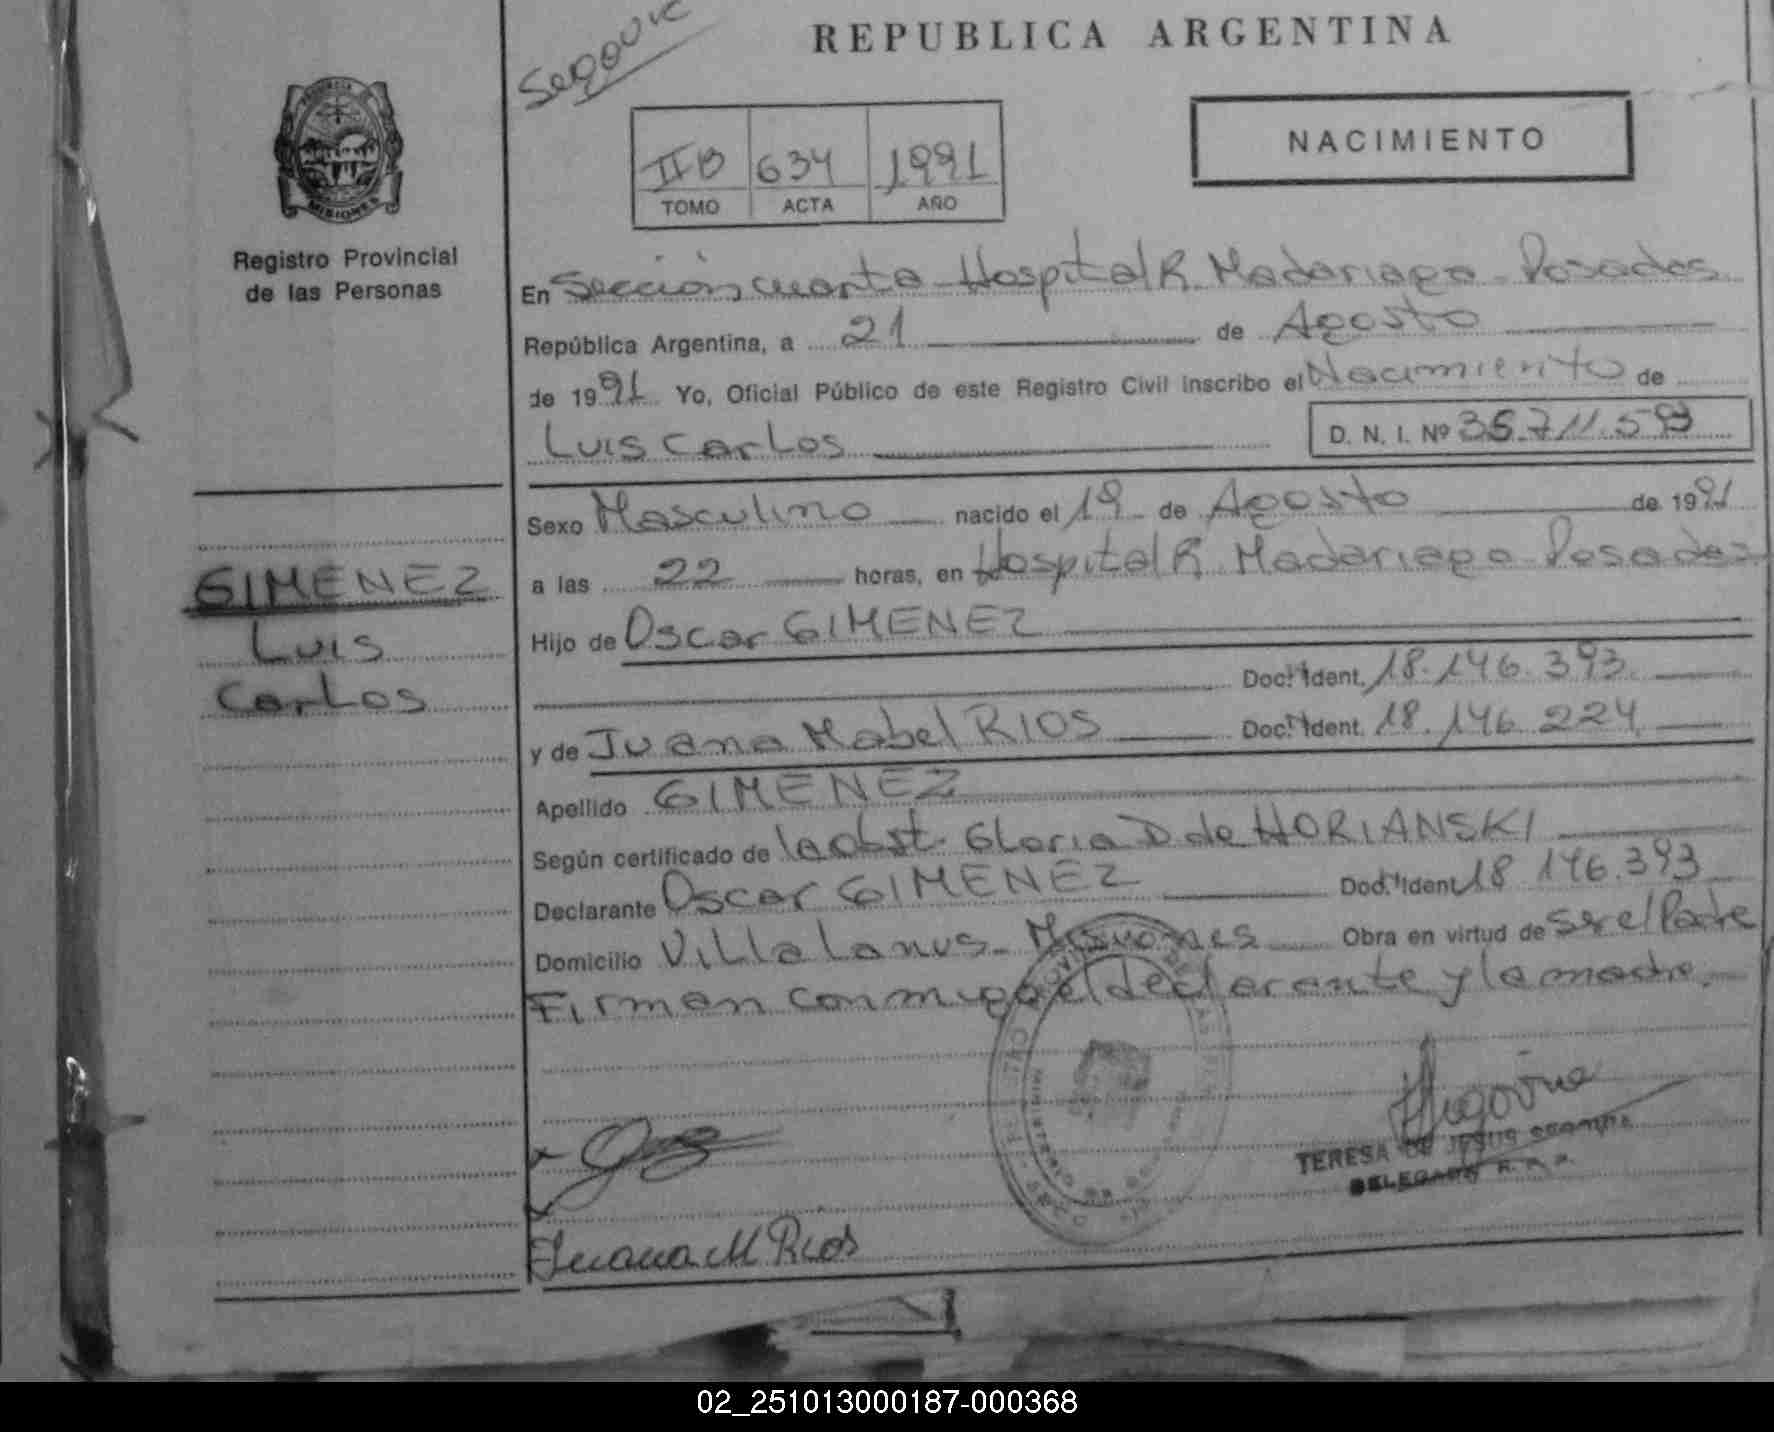 REPUBLICA ARGENTINA
PROVINCIA DE
MISIONES
Registro Provincial
de las Personas
IIB 634 1991
TOMO ACTA AÑO
NACIMIENTO
En Sección cuarta Hospital R. Madariaga - Posadas
República Argentina, a 21 de Agosto
de 1991 Yo, Oficial Público de este Registro Civil inscribo el Nacimiento de
Luis Carlos D. N. I. Nº
Sexo Masculino nacido el 19 de Agosto de 1991
a las 22 horas, en Hospital R. Madariaga - Posadas
Hijo de Oscar GIMENEZ
Doc. Ident. 18.146.393
y de Juana Mabel RIOS Doc. Ident. 18.146.224
Apellido GIMENEZ
Según certificado de la obst. Gloria D. de HORIANSKI
Declarante Oscar GIMENEZ Doc. Ident. 18.146.393
Domicilio Villa Lanus - Misiones Obra en virtud de ser el Padre
Firman conmigo el declarante y la madre.
GIMENEZ
Luis
Carlos
Juana M Rios
TERESA DE JESUS
DELEGADA R. P. P.
02_251013000187-000368